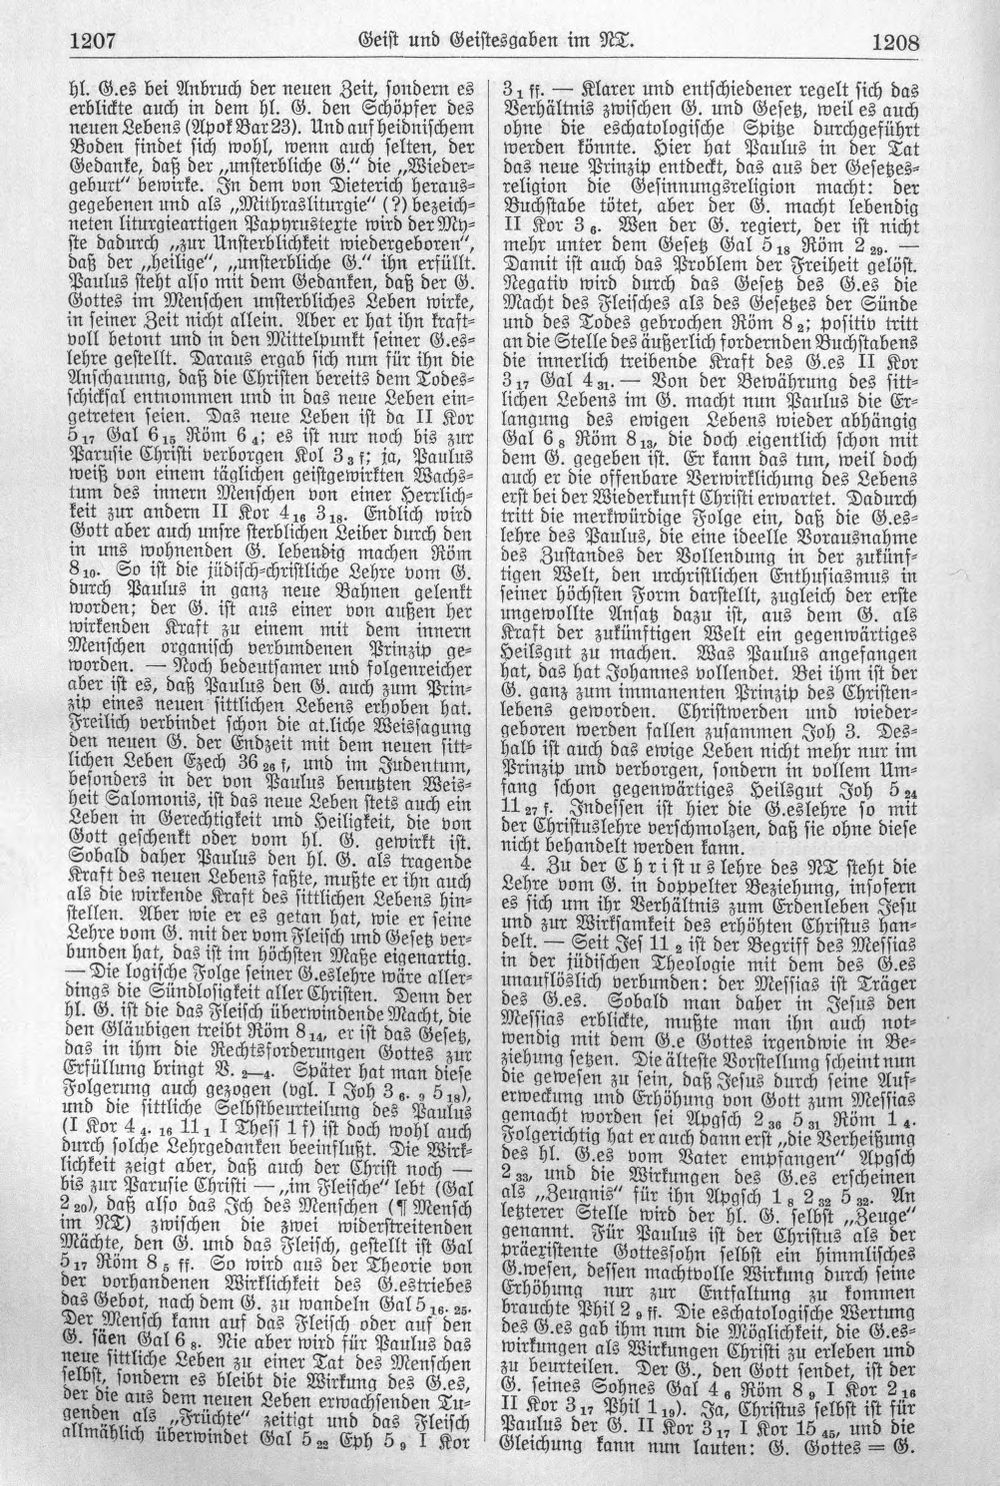 1207
Geiſt und Geiſtesgaben im NT.
1208
hl. G.es bei Anbruch der neuen Zeit, ſondern es
erblickte auch in dem hl. G. den Schöpfer des
neuen Lebens (Apok Bar 23). Und auf heidniſchem
Boden findet ſich wohl, wenn auch ſelten, der
Gedanke, daß der „unſterbliche G.“ die „Wieder-
geburt“ bewirke. In dem von Dieterich heraus-
gegebenen und als „Mithrasliturgie“ (?) bezeich-
neten liturgieartigen Papyrustexte wird der My-
ſte dadurch „zur Unſterblichkeit wiedergeboren“,
daß der „heilige“, „unſterbliche G.“ ihn erfüllt.
Paulus ſteht alſo mit dem Gedanken, daß der G.
Gottes im Menſchen unſterbliches Leben wirke,
in ſeiner Zeit nicht allein. Aber er hat ihn kraft-
voll betont und in den Mittelpunkt ſeiner G.es-
lehre geſtellt. Daraus ergab ſich nun für ihn die
Anſchauung, daß die Chriſten bereits dem Todes-
ſchickſal entnommen und in das neue Leben ein-
getreten ſeien. Das neue Leben iſt da II Kor
5 17 Gal 6 15 Röm 6 4; es iſt nur noch bis zur
Paruſie Chriſti verborgen Kol 3 3 f; ja, Paulus
weiß von einem täglichen geiſtgewirkten Wachs-
tum des innern Menſchen von einer Herrlich-
keit zur andern II Kor 4 16 3 18. Endlich wird
Gott aber auch unſre ſterblichen Leiber durch den
in uns wohnenden G. lebendig machen Röm
8 10. So iſt die jüdiſch-chriſtliche Lehre vom G.
durch Paulus in ganz neue Bahnen gelenkt
worden; der G. iſt aus einer von außen her
wirkenden Kraft zu einem mit dem innern
Menſchen organiſch verbundenen Prinzip ge-
worden. — Noch bedeutſamer und folgenreicher
aber iſt es, daß Paulus den G. auch zum Prin-
zip eines neuen ſittlichen Lebens erhoben hat.
Freilich verbindet ſchon die at.liche Weisſagung
den neuen G. der Endzeit mit dem neuen ſitt-
lichen Leben Ezech 36 26 f, und im Judentum,
beſonders in der von Paulus benutzten Weis-
heit Salomonis, iſt das neue Leben ſtets auch ein
Leben in Gerechtigkeit und Heiligkeit, die von
Gott geſchenkt oder vom hl. G. gewirkt iſt.
Sobald daher Paulus den hl. G. als tragende
Kraft des neuen Lebens faßte, mußte er ihn auch
als die wirkende Kraft des ſittlichen Lebens hin-
ſtellen. Aber wie er es getan hat, wie er ſeine
Lehre vom G. mit der vom Fleiſch und Geſetz ver-
bunden hat, das iſt im höchſten Maße eigenartig.
— Die logiſche Folge ſeiner G.eslehre wäre aller-
dings die Sündloſigkeit aller Chriſten. Denn der
hl. G. iſt die das Fleiſch überwindende Macht, die
den Gläubigen treibt Röm 8 14, er iſt das Geſetz,
das in ihm die Rechtsforderungen Gottes zur
Erfüllung bringt V. 2—4. Später hat man dieſe
Folgerung auch gezogen (vgl. I Joh 3 6. 9 5 18),
und die ſittliche Selbſtbeurteilung des Paulus
(I Kor 4 4. 16 11 1 I Theſſ 1 f) iſt doch wohl auch
durch ſolche Lehrgedanken beeinflußt. Die Wirk-
lichkeit zeigt aber, daß auch der Chriſt noch —
bis zur Paruſie Chriſti — „im Fleiſche“ lebt (Gal
2 20), daß alſo das Ich des Menſchen (¶ Menſch
im NT) zwiſchen die zwei widerſtreitenden
Mächte, den G. und das Fleiſch, geſtellt iſt Gal
5 17 Röm 8 5 ff. So wird aus der Theorie von
der vorhandenen Wirklichkeit des G.estriebes
das Gebot, nach dem G. zu wandeln Gal 5 16. 25.
Der Menſch kann auf das Fleiſch oder auf den
G. ſäen Gal 6 8. Nie aber wird für Paulus das
neue ſittliche Leben zu einer Tat des Menſchen
ſelbſt, ſondern es bleibt die Wirkung des G.es,
der die aus dem neuen Leben erwachſenden Tu-
genden als „Früchte“ zeitigt und das Fleiſch
allmählich überwindet Gal 5 22 Eph 5 9 I Kor
3 1 ff. — Klarer und entſchiedener regelt ſich das
Verhältnis zwiſchen G. und Geſetz, weil es auch
ohne die eschatologiſche Spitze durchgeführt
werden könnte. Hier hat Paulus in der Tat
das neue Prinzip entdeckt, das aus der Geſetzes-
religion die Geſinnungsreligion macht: der
Buchſtabe tötet, aber der G. macht lebendig
II Kor 3 6. Wen der G. regiert, der iſt nicht
mehr unter dem Geſetz Gal 5 18 Röm 2 29. —
Damit iſt auch das Problem der Freiheit gelöſt.
Negativ wird durch das Geſetz des G.es die
Macht des Fleiſches als des Geſetzes der Sünde
und des Todes gebrochen Röm 8 2; poſitiv tritt
an die Stelle des äußerlich fordernden Buchſtabens
die innerlich treibende Kraft des G.es II Kor
3 17 Gal 4 31. — Von der Bewährung des ſitt-
lichen Lebens im G. macht nun Paulus die Er-
langung des ewigen Lebens wieder abhängig
Gal 6 8 Röm 8 13, die doch eigentlich ſchon mit
dem G. gegeben iſt. Er kann das tun, weil doch
auch er die offenbare Verwirklichung des Lebens
erſt bei der Wiederkunft Chriſti erwartet. Dadurch
tritt die merkwürdige Folge ein, daß die G.es-
lehre des Paulus, die eine ideelle Vorausnahme
des Zuſtandes der Vollendung in der zukünf-
tigen Welt, den urchriſtlichen Enthuſiasmus in
ſeiner höchſten Form darſtellt, zugleich der erſte
ungewollte Anſatz dazu iſt, aus dem G. als
Kraft der zukünftigen Welt ein gegenwärtiges
Heilsgut zu machen. Was Paulus angefangen
hat, das hat Johannes vollendet. Bei ihm iſt der
G. ganz zum immanenten Prinzip des Chriſten-
lebens geworden. Chriſtwerden und wieder-
geboren werden fallen zuſammen Joh 3. Des-
halb iſt auch das ewige Leben nicht mehr nur im
Prinzip und verborgen, ſondern in vollem Um-
fang ſchon gegenwärtiges Heilsgut Joh 5 24
11 27 f. Indeſſen iſt hier die G.eslehre ſo mit
der Chriſtuslehre verſchmolzen, daß ſie ohne dieſe
nicht behandelt werden kann.
4. Zu der Chriſtuslehre des NT ſteht die
Lehre vom G. in doppelter Beziehung, inſofern
es ſich um ihr Verhältnis zum Erdenleben Jeſu
und zur Wirkſamkeit des erhöhten Chriſtus han-
delt. — Seit Jeſ 11 2 iſt der Begriff des Meſſias
in der jüdiſchen Theologie mit dem des G.es
unauflöslich verbunden: der Meſſias iſt Träger
des G.es. Sobald man daher in Jeſus den
Meſſias erblickte, mußte man ihn auch not-
wendig mit dem G.e Gottes irgendwie in Be-
ziehung ſetzen. Die älteſte Vorſtellung ſcheint nun
die geweſen zu ſein, daß Jeſus durch ſeine Auf-
erweckung und Erhöhung von Gott zum Meſſias
gemacht worden ſei Apgſch 2 36 5 31 Röm 1 4.
Folgerichtig hat er auch dann erſt „die Verheißung
des hl. G.es vom Vater empfangen“ Apgſch
2 33, und die Wirkungen des G.es erſcheinen
als „Zeugnis“ für ihn Apgſch 1 8 2 32 5 32. An
letzterer Stelle wird der hl. G. ſelbſt „Zeuge“
genannt. Für Paulus iſt der Chriſtus als der
präexiſtente Gottesſohn ſelbſt ein himmliſches
G.weſen, deſſen machtvolle Wirkung durch ſeine
Erhöhung nur zur Entfaltung zu kommen
brauchte Phil 2 9 ff. Die eschatologiſche Wertung
des G.es gab ihm nun die Möglichkeit, die G.es-
wirkungen als Wirkungen Chriſti zu erleben und
zu beurteilen. Der G., den Gott ſendet, iſt der
G. ſeines Sohnes Gal 4 6 Röm 8 9 I Kor 2 16
II Kor 3 17 Phil 1 19). Ja, Chriſtus ſelbſt iſt für
Paulus der G. II Kor 3 17 I Kor 15 45, und die
Gleichung kann nun lauten: G. Gottes = G.